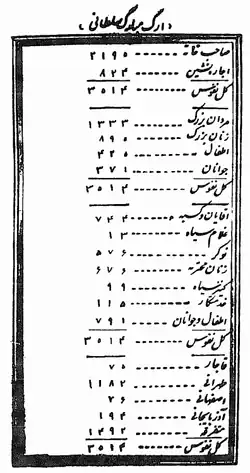 (ارگ مبارک سلطانی)
صاحب خانه ------ ۲۱۹۰
اجاره نشین ------ ۸۲۴
کل نفوس ------ ۳۰۱۴
مردان بزرگ ------ ۱۳۳۳
زنان بزرگ ------ ۸۹۰
اطفال ------ ۴۲۰
جوانان ------ ۳۷۱
کل نفوس ------ ۳۰۱۴
آقایان و کسبه ------ ۷۴۴
غلام سیاه ------ ۱۳
نوکر ------ ۵۷۶
زنان محترمه ------ ۶۷۶
کنیز سیاه ------ ۹۹
خدمتکار ------ ۱۱۵
اطفال و جوانان ------ ۷۹۱
کل نفوس ------ ۳۰۱۴
قاجار ------ ۷۰
طهرانی ------ ۱۱۸۲
اصفهانی ------ ۷۶
آذربایجانی ------ ۱۹۴
متفرقه ------ ۱۴۹۲
کل نفوس ------ ۳۰۱۴